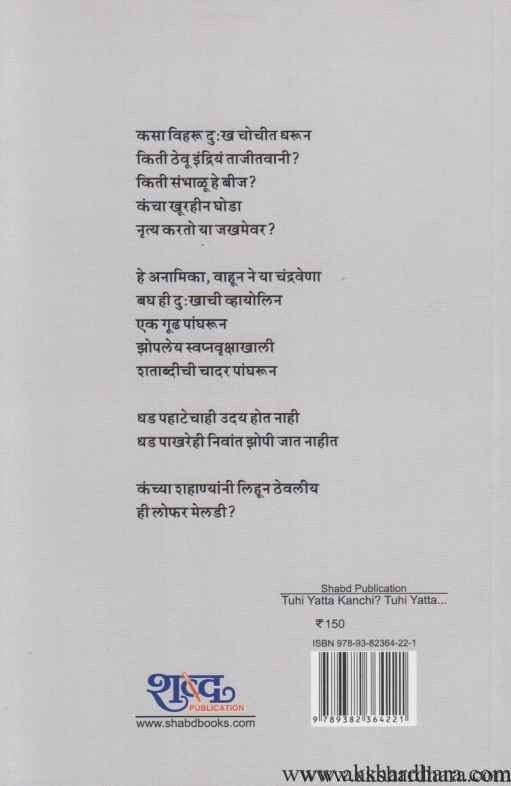 कसा विहरू दुःख चोचीत धरून
किती ठेवू इंद्रियं ताजीतवानी?
किती संभाळू हे बीज?
कंचा खूरहीन घोडा
नृत्य करतो या जखमेवर?
हे अनामिका, वाहून ने या चंद्रवेणा
बघ ही दुःखाची व्हायोलिन
एक गूढ पांघरून
झोपलेय स्वप्नवृक्षाखाली
शताब्दीची चादर पांघरून
धड पहाटेचाही उदय होत नाही
धड पाखरेही निवांत झोपी जात नाहीत
कंच्या शहाण्यांनी लिहून ठेवलीय
ही लोफर मेलडी?
Shabd Publication
Tuhi Yatta Kanchi? Tuhi Yatta...
₹150
ISBN 978-93-82364-22-1
9 789382 364221
शब्द
PUBLICATION
www.shabdbooks.com
www.akkshardhara.com